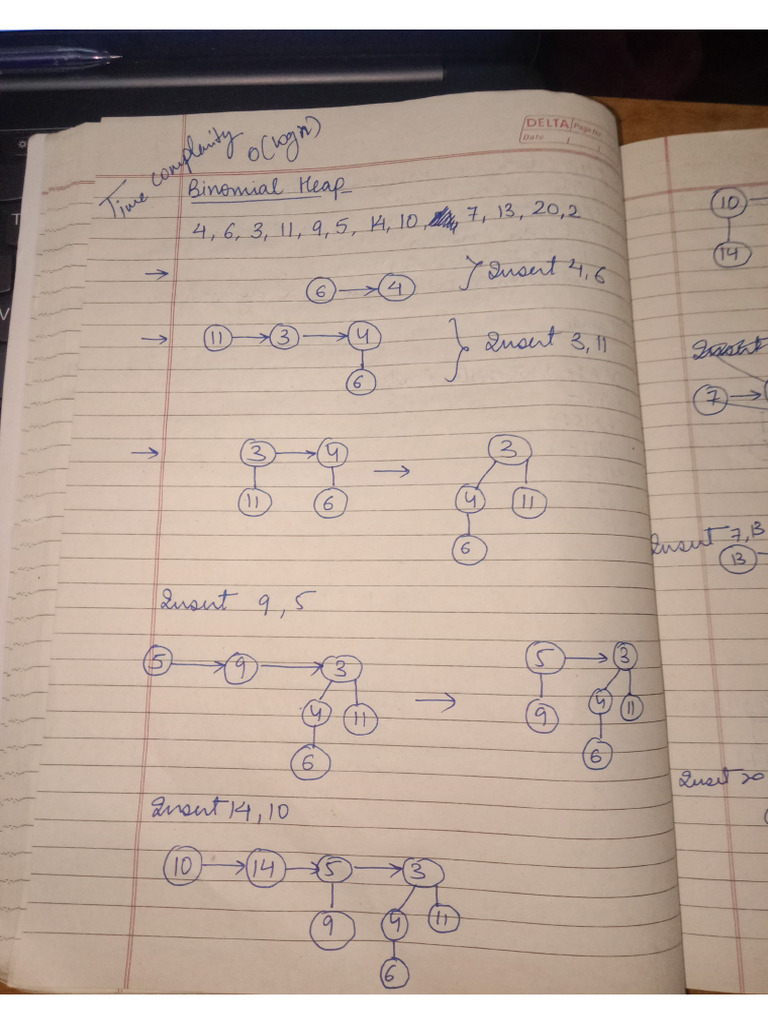 DELTA Page No.
Date / /
Time complexity O(logn)
Binomial Heap
4, 6, 3, 11, 9, 5, 14, 10, 7, 13, 20, 2
6 4 Insert 4, 6
11 3 4 Insert 3, 11
6
3 4 3
11 6 4 11
6
Insert 9, 5
5 9 3 5 3
4 11 9 4 11
6 6
Insert 14, 10
10 14 5 3
9 4 11
6
10
14
Insert
7
Insert 7, 13
13
Insert 20